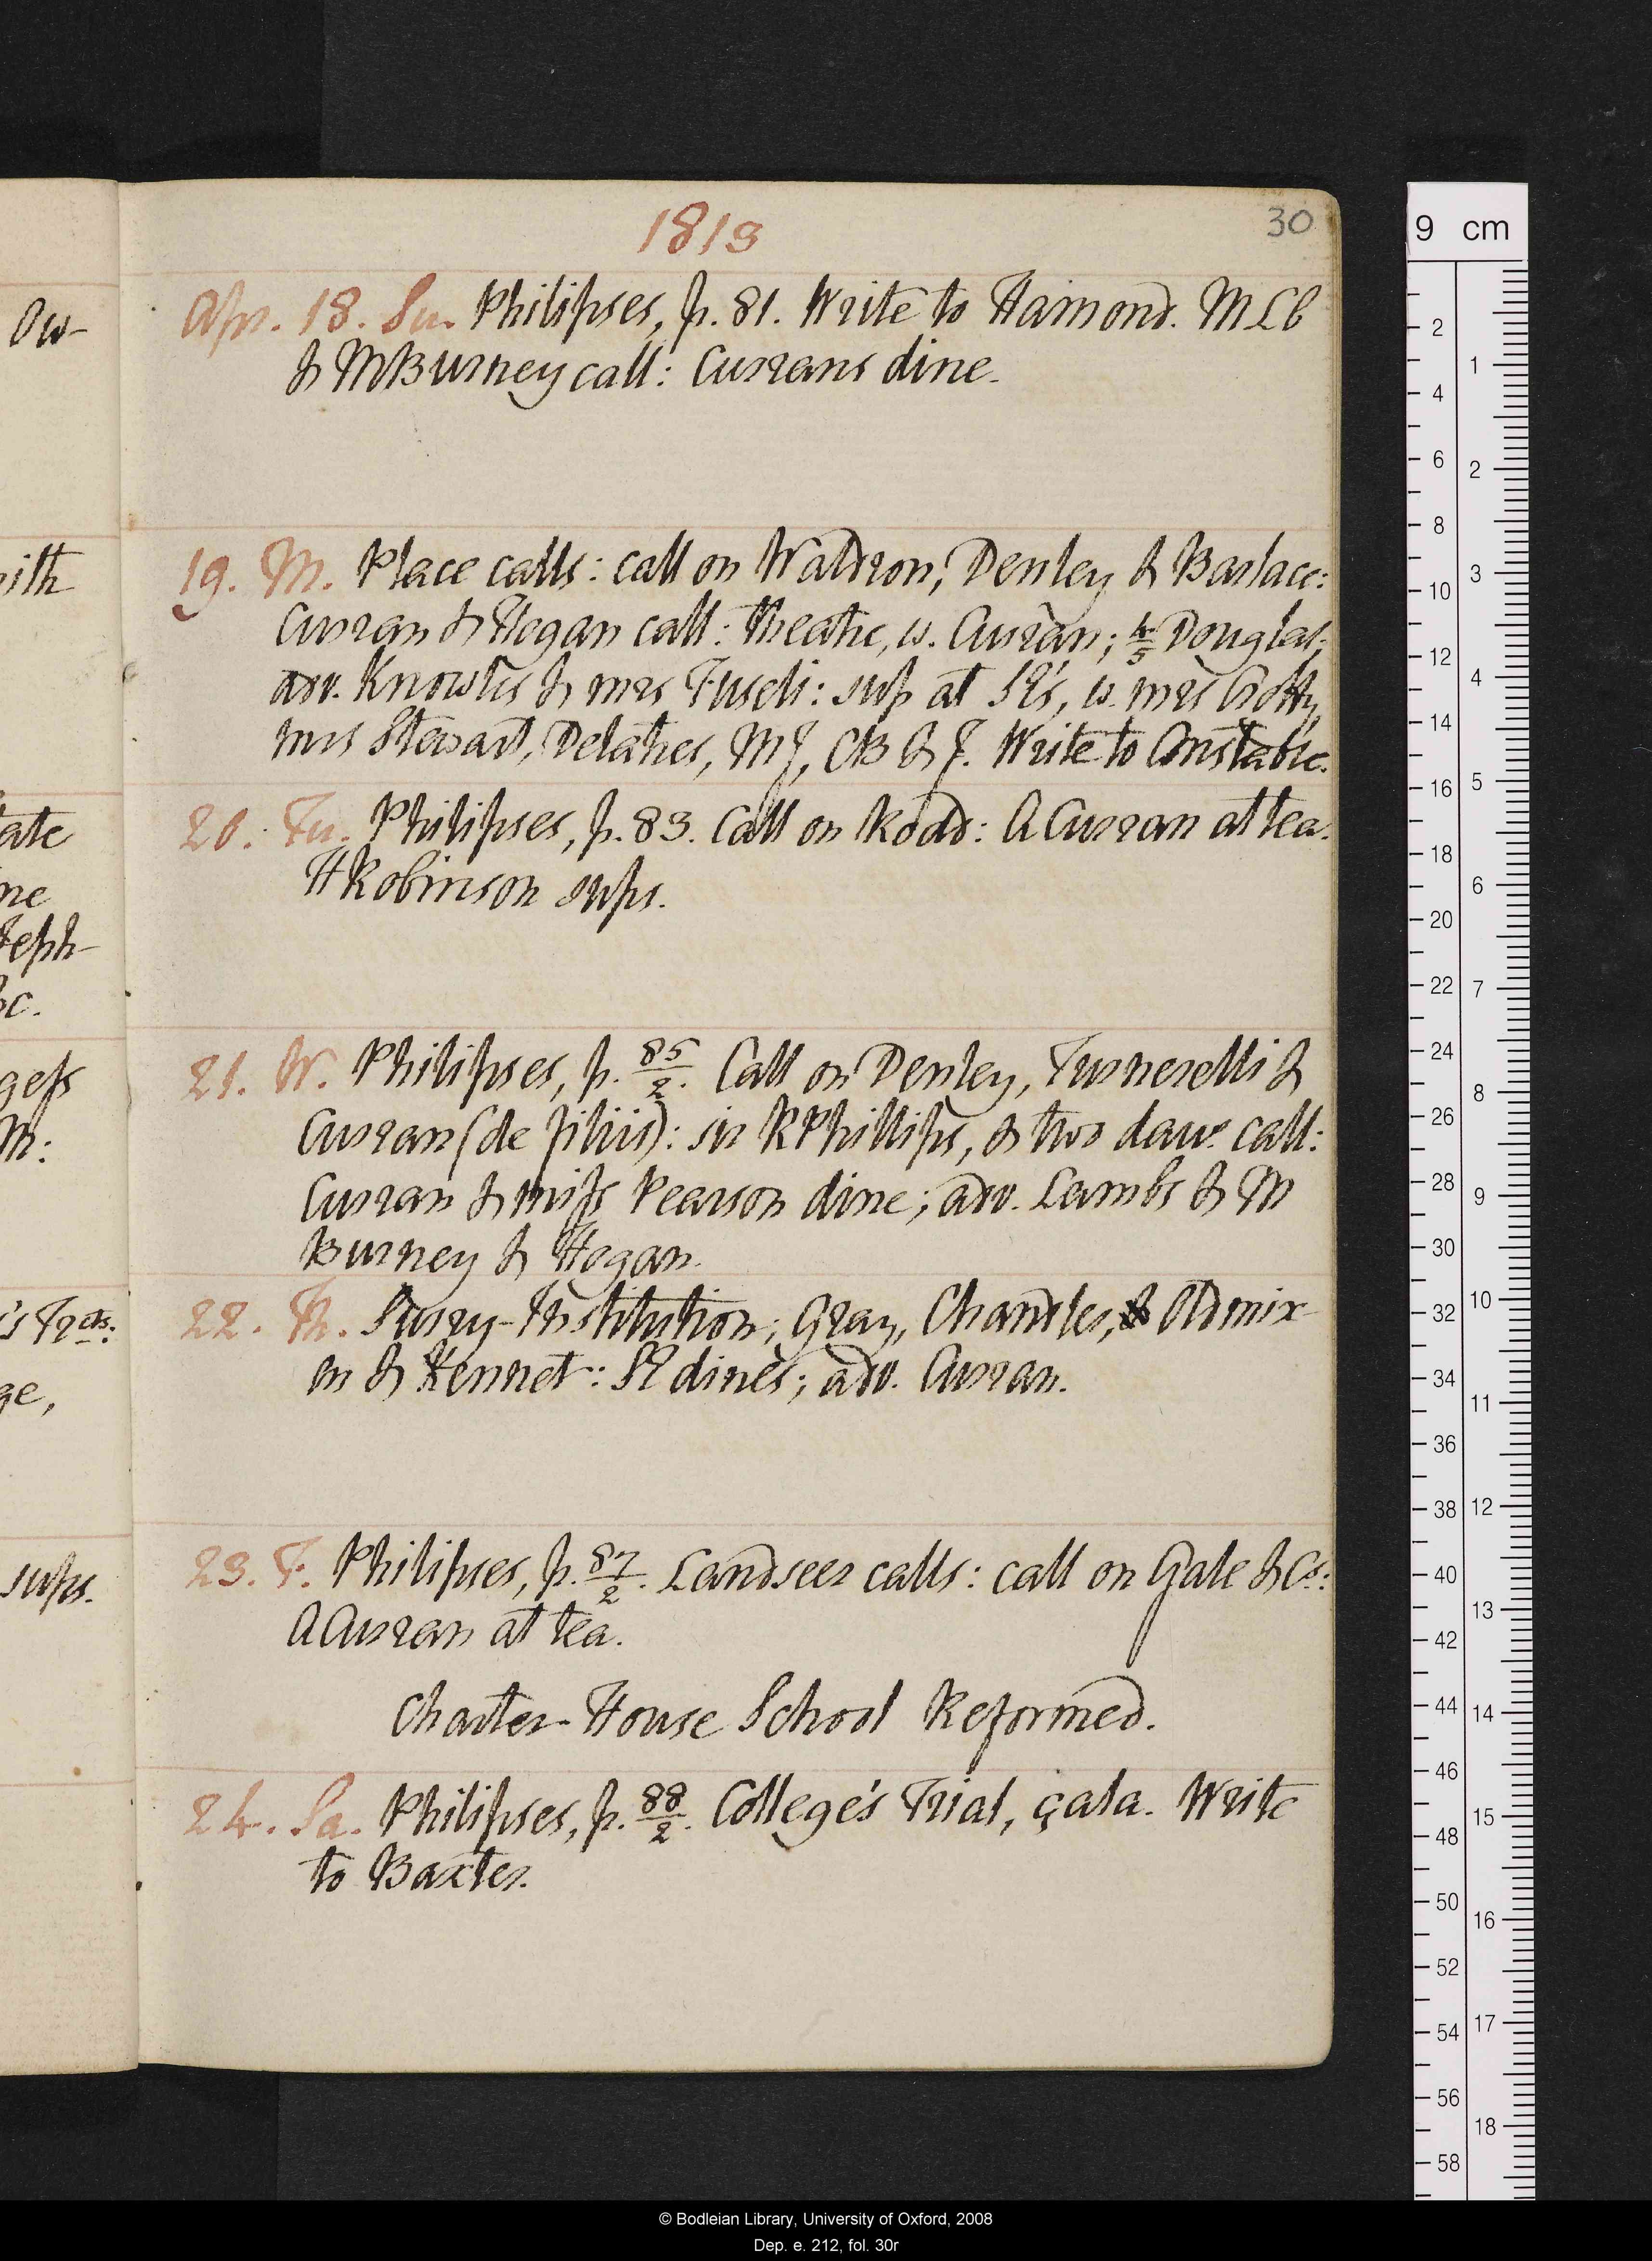 1813
30
Apr. 18. Su. Philipses, p. 81. Write to Hamond. M L b
& M Burney call: Currans dine.
19. M. Place calls: call on Waldron, Denley & Barlace:
Curran & Hogan call: theatre, w. Curran; 4/5 Douglas;
adv. Knowles & mrs Fuseli: sup at SR's, w. mrs
mrs Stewart, Delatres, MJ, CB & J. Write to Constable.
20. Tu. Philipses, p. 83. Call on Rodd: A Curran at tea.
H Robinson sups.
21. W. Philipses, p. 85/2. Call on Denley, Turnerelli &
Curran (de filiis): sir R Phillips, & two daurs. call:
Curran & miss Pearson dine; adv. Lambs & M
Burney & Hogan.
22. Th. Surry-Institution; Gray, Chandler, & Oldmix-
on & Kennet: SR dines; adv. Curran.
23. F. Philipses, p. 87/2. Landseer calls: call on Gale & Co:
A Curran at tea.
Charter-House School Reformed.
24. Sa. Philipses, p. 88/2. College's Trial, çala. Write
to Baxter.
Ow-
ith
ate
ne
eph-
&c.
gess
M:
's Trcts:
ge,
sups.
9 cm
2
4
6
8
10
12
14
16
18
20
22
24
26
28
30
32
34
36
38
40
42
44
46
48
50
52
54
56
58
1
2
3
4
5
6
7
8
9
10
11
12
13
14
15
16
17
18
© Bodleian Library, University of Oxford, 2008
Dep. e. 212, fol. 30r